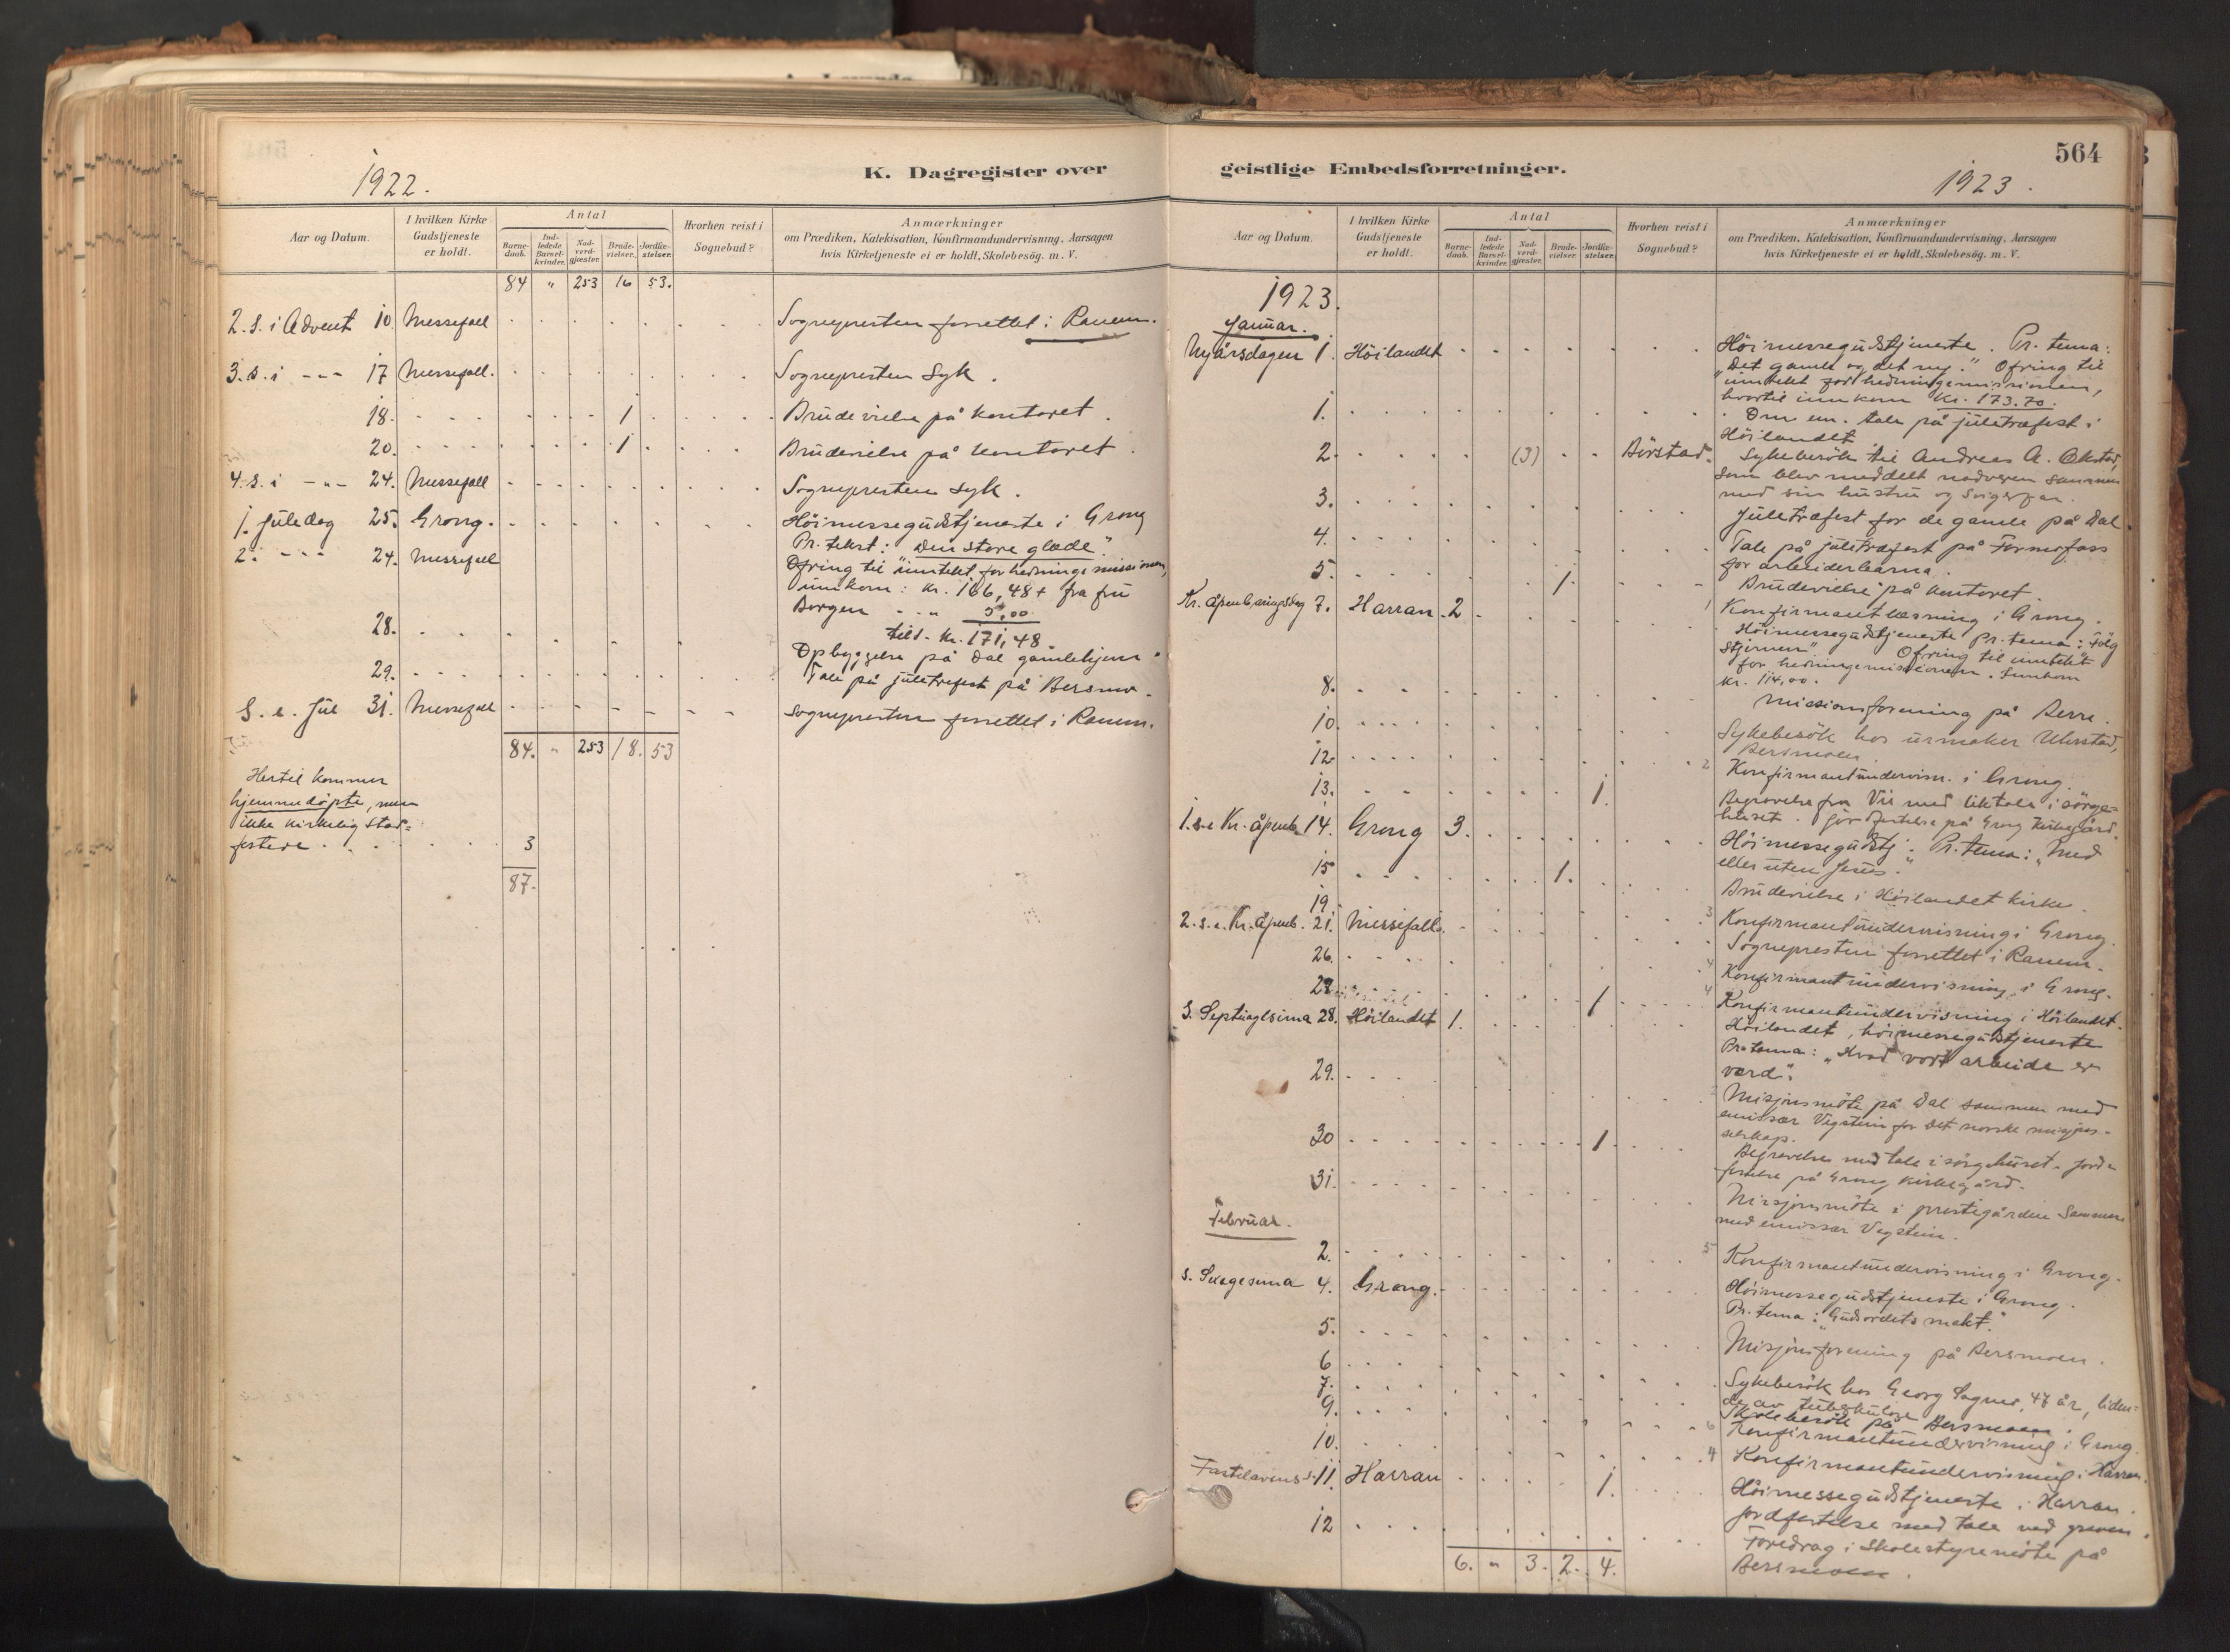 1922.
K. Dagregister over
Aar og Datum.
I hvilken Kirke Gudstjeneste er holdt.
Antal
Barnedaab.
Indledede Barselkvinder.
Nadverdgjæster.
Brudevielser.
Jordfæstelser.
Hvorhen reist i Sognebud?
Anmærkninger
om Prædiken, Katekisation, Konfirmandundervisning, Aarsagen
hvis Kirketjeneste ei er holdt, Skolebesög. m. V.
84 " 253 16 53.
2. S. i Advent 10. Messefall Sognepresten forrettet i Ranem.
3. s. i - - - 17 Messefall. Sognepresten syk.
18. 1 Brudevielse på kontoret.
20. 1 Brudevielse på kontoret.
4. s. i - " - 24. Messefall Sognepresten syk.
1. juledag 25. Grong. Höimessegudstjeneste i Grong
Pr. tekst: "Den store glæde".
2. - - - 24. Messefall
Ofring til inntekt for hedningemissionen,
innkom: Kr. 166,48 + fra fru
Borgen - - " 5,00
tils. Kr. 171,48.
28. Opbyggelse på Dal gamlehjem.
29. Tale på juletrefest på Bersmo.
S. e. Jul 31. Messefall Sognepresten forrettet i Ranem.
84. " 253 18. 53
Hertil kommer
hjemmedöpte, men
ikke kirkelig stad=
festede 3
87.
geistlige Embedsforretninger.
564
1923.
Aar og Datum.
I hvilken Kirke Gudstjeneste er holdt.
Antal
Barnedaab.
Indledede Barselkvinder.
Nadverdgjæster.
Brudevielser.
Jordfæstelser.
Hvorhen reist i Sognebud?
Anmærkninger
om Prædiken, Katekisation, Konfirmandundervisning, Aarsagen
hvis Kirketjeneste ei er holdt, Skolebesög. m. V.
1923.
Januar.
Nyårsdagen 1. Höilandet Höimessegudstjeneste. Pr. tema:
"Det gamle og det ny." Ofring til
inntekt for hedningemissionen,
hvortil innkom Kr. 173.70.
1. Om em. tale på juletræfest i
Höilandet.
2. (3) Börstad. Sykebesök til Andreas A. Ekstad,
som blev meddelt nadveren sammen
med sin hustru og Svigerfar.
3. Juletræfest for de gamle på Dal.
4. Tale på juletræfest på Formofoss
for arbeiderbarna.
5. 1. Brudevielse på kontoret.
1 Konfirmantlæsning i Grong.
Kr. åpenbaringsdag 7. Harran 2 Höimessegudstjeneste Pr. tema: "Følg
Stjernen" Ofring til inntekt
for hedningemissionen. Innkom
Kr. 114,00.
8. Missionsforening på Berre.
10. Sykebesök hos urmaker Uhrstad,
Bersmoen.
12. 2 Konfirmantundervisn. i Grong.
13. 1. Begravelse fra Vie med liktale i sörge=
huset. Jordfestelse på Grong Kirkegård.
1. s. e. Kr. åpenb. 14. Grong 3. Höimessegudstj. Pr. tema: "Med
eller uten Jesus."
15 1. Brudevielse i Höilandet kirke.
19. 3 Konfirmantundervisning i Grong.
2. s. e. Kr. åpenb. 21. Messefall. Sognepresten forrettet i Ranem.
26. 4 Konfirmantundervisning i Grong.
27. 4 1 Konfirmantundervisning i Höilandet.
S. Septuagesima 28. Höilandet 1. Höilandet, höimessegudstjeneste
Pr. tema: "Hvad vort arbeide er
værd".
29. Misjonsmöte på Dal sammen med
emissær Vegstein for Det norske misjons-
selskap.
30 1. Begravelse med tale i sörgehuset. Jord=
festelse på Grong kirkegård.
31. Misjonsmöte i prestegården sammen
med emissær Vegstein.
Februar.
2. 5 Konfirmantundervisning i Grong.
S. Sexagesima 4. Grong. Höimessegudstjeneste i Grong.
Pr. tema: "Gudsordets makt".
5. Misjonsforening på Bersmoen.
6 Sykebesök hos Georg Sagmo, 47 år, liden=
de av tuberkulose
7. Skolebesök på Bersmoen.
9. 6 Konfirmantundervisning i Grong.
10. 4 Konfirmantundervisning i Harran.
Fastelavens s. 11. Harran 1. Höimessegudstjeneste i Harran.
Jordfestelse med tale ved graven.
12 Foredrag i Skolestyremöte på
Bersmoen.
6. " 3. 2. 4.